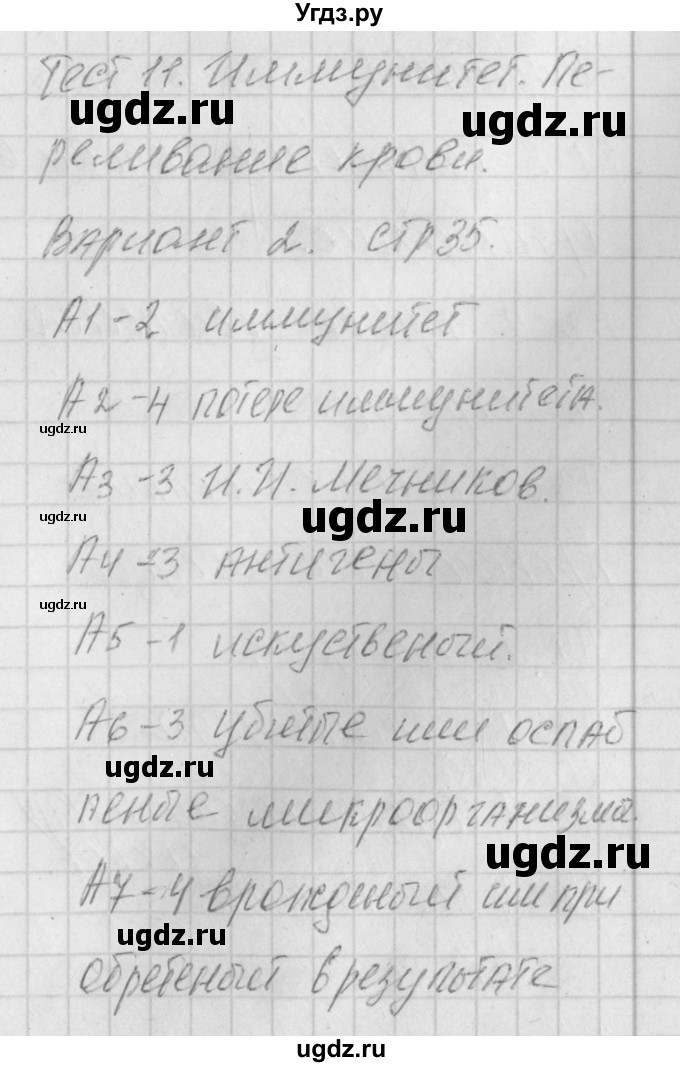 Угдз.ру
Тест 11. Иммунитет. Пе-
ugdz.ru
реливание крови.
Вариант 2. стр 35.
А1-2 иммунитет
А2-4 потере иммунитета.
ugdz.ru
А3-3 И.И. Мечников.
ugdz.ru
ugdz.ru
А4-3 антигены
ugdz.ru
А5-1 искуственый.
А6-3 убитые или ослаб
ugdz.ru
леные микроорганизма.
ugdz.ru
А7-4 врожденый или при
ugdz.ru
обретеный в результате
ugdz.ru